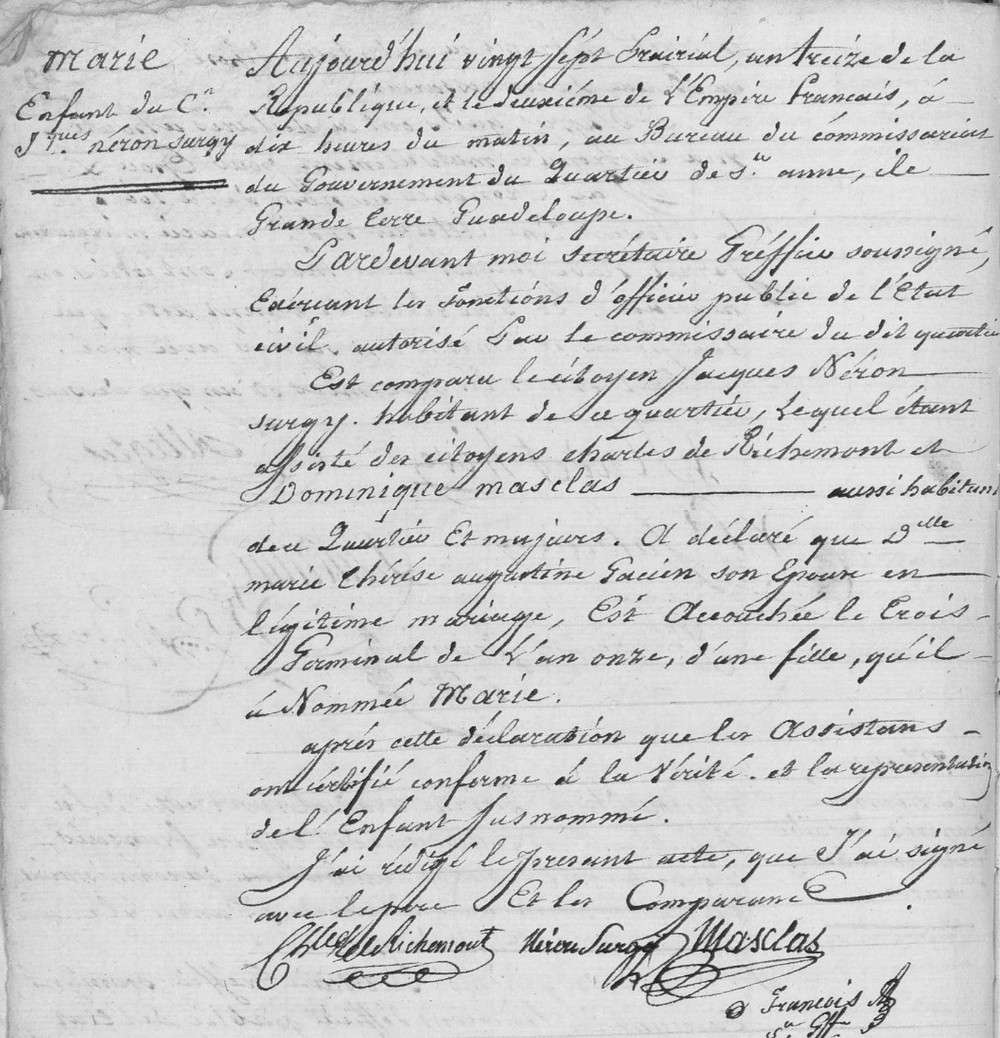 Marie
Enfant du C.n
J.ques néron surgy
Aujourd'hui vingt sept Prairial, an treize de la
République, et le deuxiéme de L'Empire Francais, á
dix heures du matin, au Bureau du commissariat
du Gouvernement du Quartier de S.te anne, ile
Grande terre Guadeloupe.
Pardevant moi secrétaire Gréffier soussigné,
Exérçant les fonctions d'officier public de l'Etat
civil. autorisé Par le commissaire du dit quartier
Est comparu le citoyen Jacques Néron
surgy. habitant de ce quartier, Lequel étant
assisté des citoyens charles de Richemont et
Dominique masclas aussi habitans
de ce Quartier Et majeurs. A déclaré que D.elle
marie thérése augustine Gacien son Epouse en
légitime mariage, Est Accouchée le trois
Germinal de L'an onze, d'une fille, qu'il
á Nommée Marie.
aprés cette déclaration que les Assistans
ont cértifié conforme á la Vérité. et la représentation
de l'Enfant susnommé.
J'ai rédigé le présant acte, que J'ai signé
avec le pere Et les Comparans.
Ch.les de Richemont Néron Surgy Masclas
Francois
S.re Gff.er